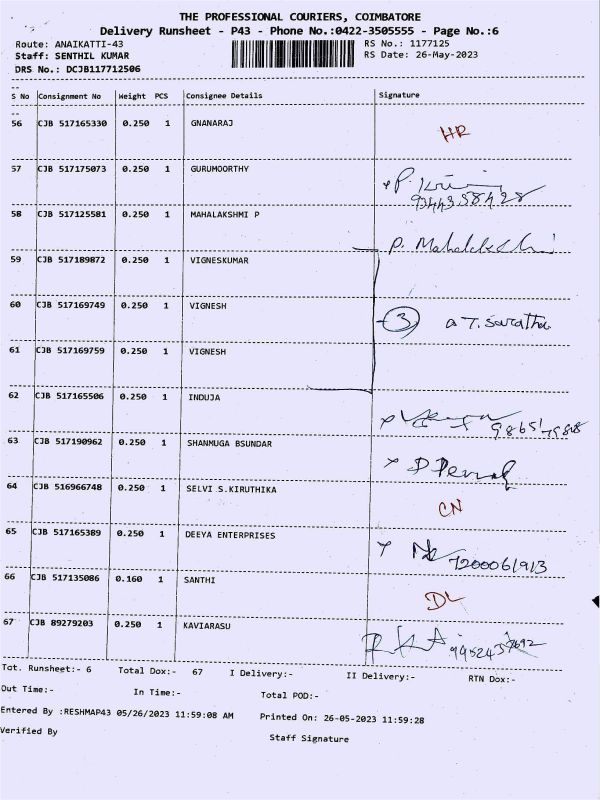 THE PROFESSIONAL COURIERS, COIMBATORE
Delivery Runsheet - P43 - Phone No.:0422-3505555 - Page No.:6
Route: ANAIKATTI-43 RS No.: 1177125
Staff: SENTHIL KUMAR RS Date: 26-May-2023
DRS No.: DCJB117712506
--
S No Consignment No Weight PCS Consignee Details Signature
--
56 CJB 517165330 0.250 1 GNANARAJ HR
57 CJB 517175073 0.250 1 GURUMOORTHY
58 CJB 517125581 0.250 1 MAHALAKSHMI P
59 CJB 517189872 0.250 1 VIGNESKUMAR
60 CJB 517169749 0.250 1 VIGNESH 3
61 CJB 517169759 0.250 1 VIGNESH
62 CJB 517165506 0.250 1 INDUJA
63 CJB 517190962 0.250 1 SHANMUGA BSUNDAR
64 CJB 516966748 0.250 1 SELVI S.KIRUTHIKA CN
65 CJB 517165389 0.250 1 DEEYA ENTERPRISES 7200061913
66 CJB 517135086 0.160 1 SANTHI DL
67 CJB 89279203 0.250 1 KAVIARASU
Tot. Runsheet:- 6 Total Dox:- 67 I Delivery:- II Delivery:- RTN Dox:-
Out Time:- In Time:- Total POD:-
Entered By :RESHMAP43 05/26/2023 11:59:08 AM Printed On: 26-05-2023 11:59:28
Verified By Staff Signature